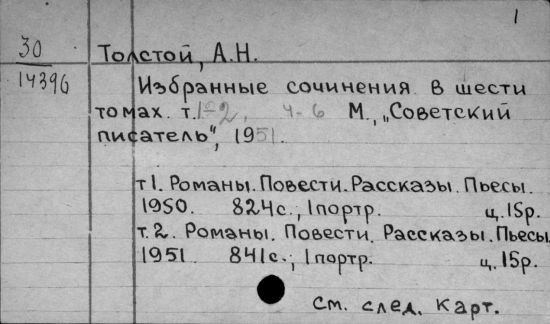 1
30
Толстой, А.Н.
14396
Избранные сочинения в шести
томах. т.1-2, 4-6 М., „Советский
писатель", 1951.
т1. Романы. Повести. Рассказы. Пьесы.
1950. 824с.; 1портр. ц.15р.
т.2. Романы. Повести. Рассказы. Пьесы.
1951. 841с.; 1портр. ц.15р.
См. след. карт.